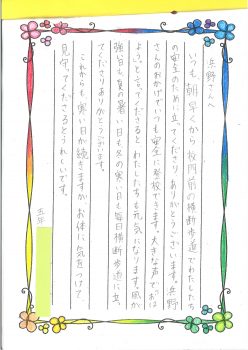 浜野さんへ
いつも、朝早くから校門前の横断歩道でわたしたち
の安全のために立ってくださりありがとうございます。浜野
さんのおかげでいつも安全に登校できます。大きな声で「おは
よう。」と言ってくださるとわたしたちも元気になります。風が
強い日も夏の暑い日も冬の寒い日も毎日横断歩道に立っ
てくださりありがとうございます。
これからも寒い日が続きますが、お体に気をつけて、
見守ってくださるとうれしいです。
五年